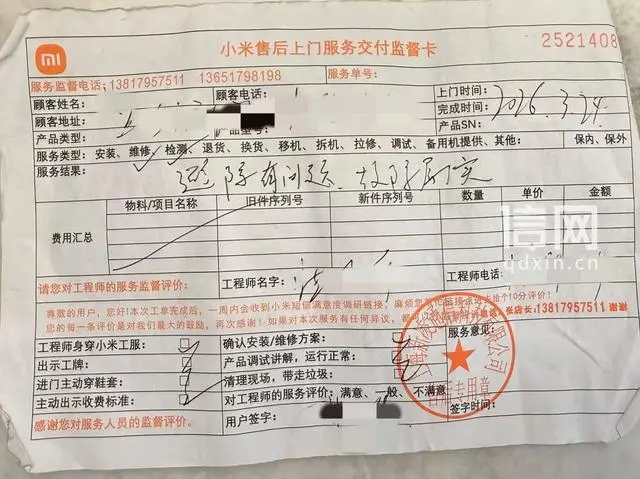 小米售后上门服务交付监督卡
2521408
mi
服务监督电话:13817957511 13651798198
服务单号:
顾客姓名:
顾客电话:
上门时间:
顾客地址:
完成时间: 2026.3.24
产品类型:
产品型号:
产品SN:
服务类型: 安装、维修、检测、退货、换货、移机、拆机、拉修、调试、备用机提供、其他: 保内、保外
服务结果:
有问题、故障属实
物料/项目名称 旧件序列号 新件序列号 数量 单价 金额
费用汇总
信网
qdxin.cn
请您对工程师的服务监督评价:
工程师名字:
工程师电话:
尊敬的用户,您好!本次工单完成后,一周内会收到小米短信满意度调研链接,麻烦您
给10分评价!
您的每一条评价是对我们最大的鼓励,再次感谢!如果对本次服务有任何异议,都可以
张店长:13817957511 谢谢
工程师身穿小米工服:
确认安装/维修方案:
服务意见:
出示工牌:
产品调试讲解,运行正常:
进门主动穿鞋套:
清理现场,带走垃圾:
主动出示收费标准:
对工程师的服务评价: 满意、一般、不满意
签字时间:
感谢您对服务人员的监督评价。
用户签字: